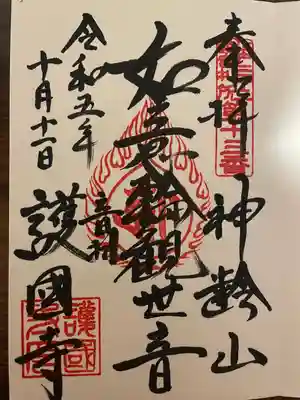 奉拝 神齢山
札所第十三番
如意輪観世音
令和五年
十月十一日
音羽
護國寺